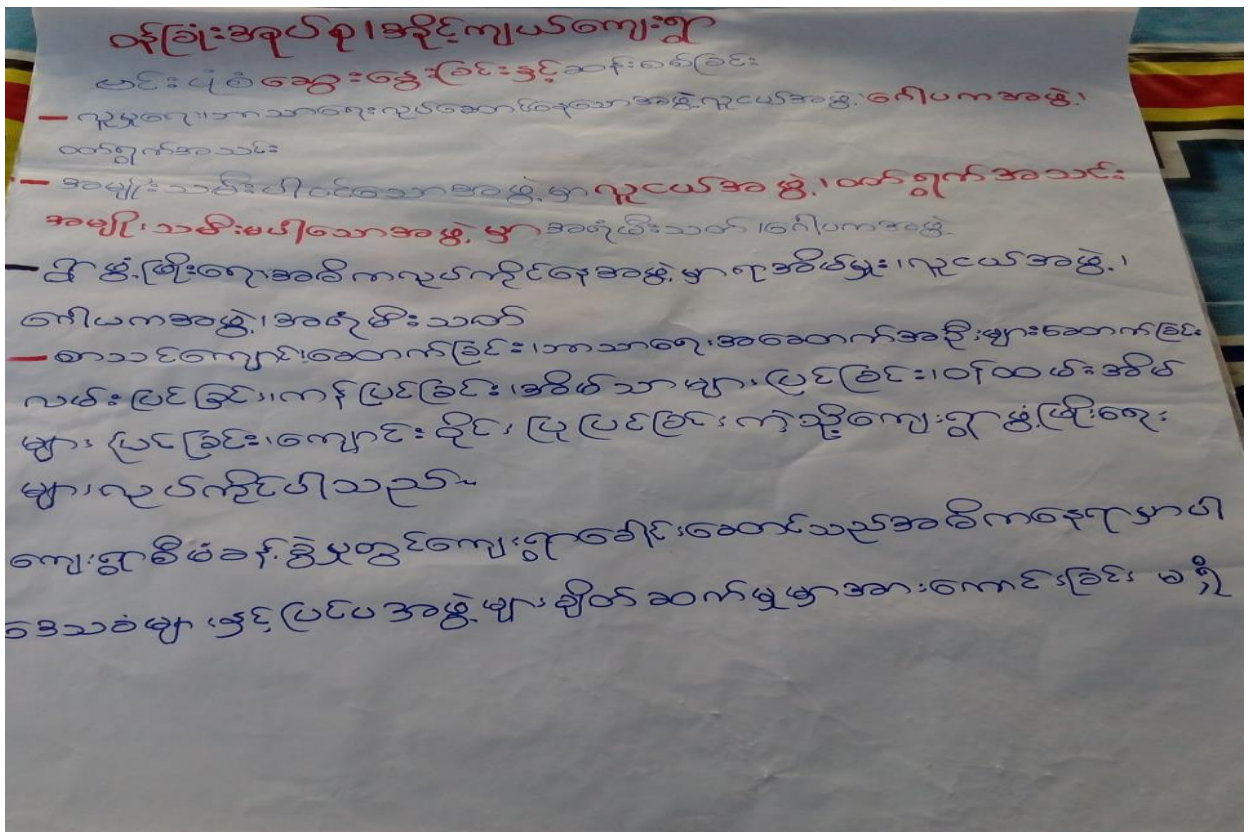 ဝန်ခြုံးအုပ်စု၊အနိုင့်ကျယ်ကျေးရွာ
ဗင်းပုံစံဆွေးနွေးခြင်းနှင့်ဆန်းစစ်ခြင်း
- လူမှုရေး၊ဘာသာရေးလုပ်ဆောင်နေသောအဖွဲ့လူငယ်အဖွဲ့၊ဂေါပကအဖွဲ့၊
ဝတ်ရွတ်အသင်း
- အမျိုးသမီးပါဝင်သောအဖွဲ့မှာလူငယ်အဖွဲ့၊ဝတ်ရွတ်အသင်း
အမျိုးသမီးမပါသောအဖွဲ့မှာ အရံမီးသတ်၊ဂေါပကအဖွဲ့
- ရွာဖွံ့ဖြိုးရေးအဓိကလုပ်ကိုင်နေအဖွဲ့မှာရာအိမ်မှူး၊လူငယ်အဖွဲ့၊
ဂေါပကအဖွဲ့၊အရံမီးသတ်
- စာသင်ကျောင်းဆောက်ခြင်း၊ဘာသာရေးအဆောက်အဦးများဆောက်ခြင်း
လမ်းပြင်ခြင်း၊ကန်ပြင်ခြင်း၊အိမ်သာများပြင်ခြင်း၊ဝန်ထမ်းအိမ်
များပြင်ခြင်း၊ကျောင်းဝိုင်းပြုပြင်ခြင်းကဲ့သို့ကျေးရွာဖွံ့ဖြိုးရေး
များလုပ်ကိုင်ပါသည်။
ကျေးရွာစီမံခန့်ခွဲမှုတွင်ကျေးရွာခေါင်းဆောင်သည်အဓိကနေရာမှာပါ
ဒေသခံများနှင့်ပြင်ပအဖွဲ့များချိတ်ဆက်မှုမှာအားကောင်းခြင်း မရှိ